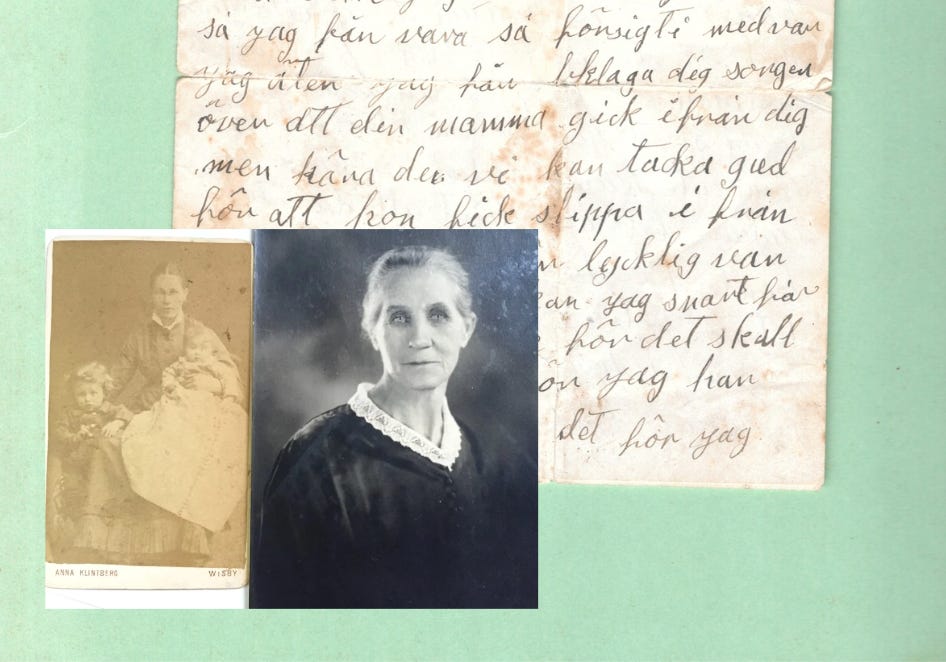 så yag kan vara så hönsigti med van
yag äten yag kan bklaga dig sorgen
över att din mamma gick ifrån dig
men kära der vi kan tacka gud
hör att hon fick slippa i från
lycklig van
yag snart har
hör det skall
yag han
det hör yag
ANNA KLINTBERG WISBY